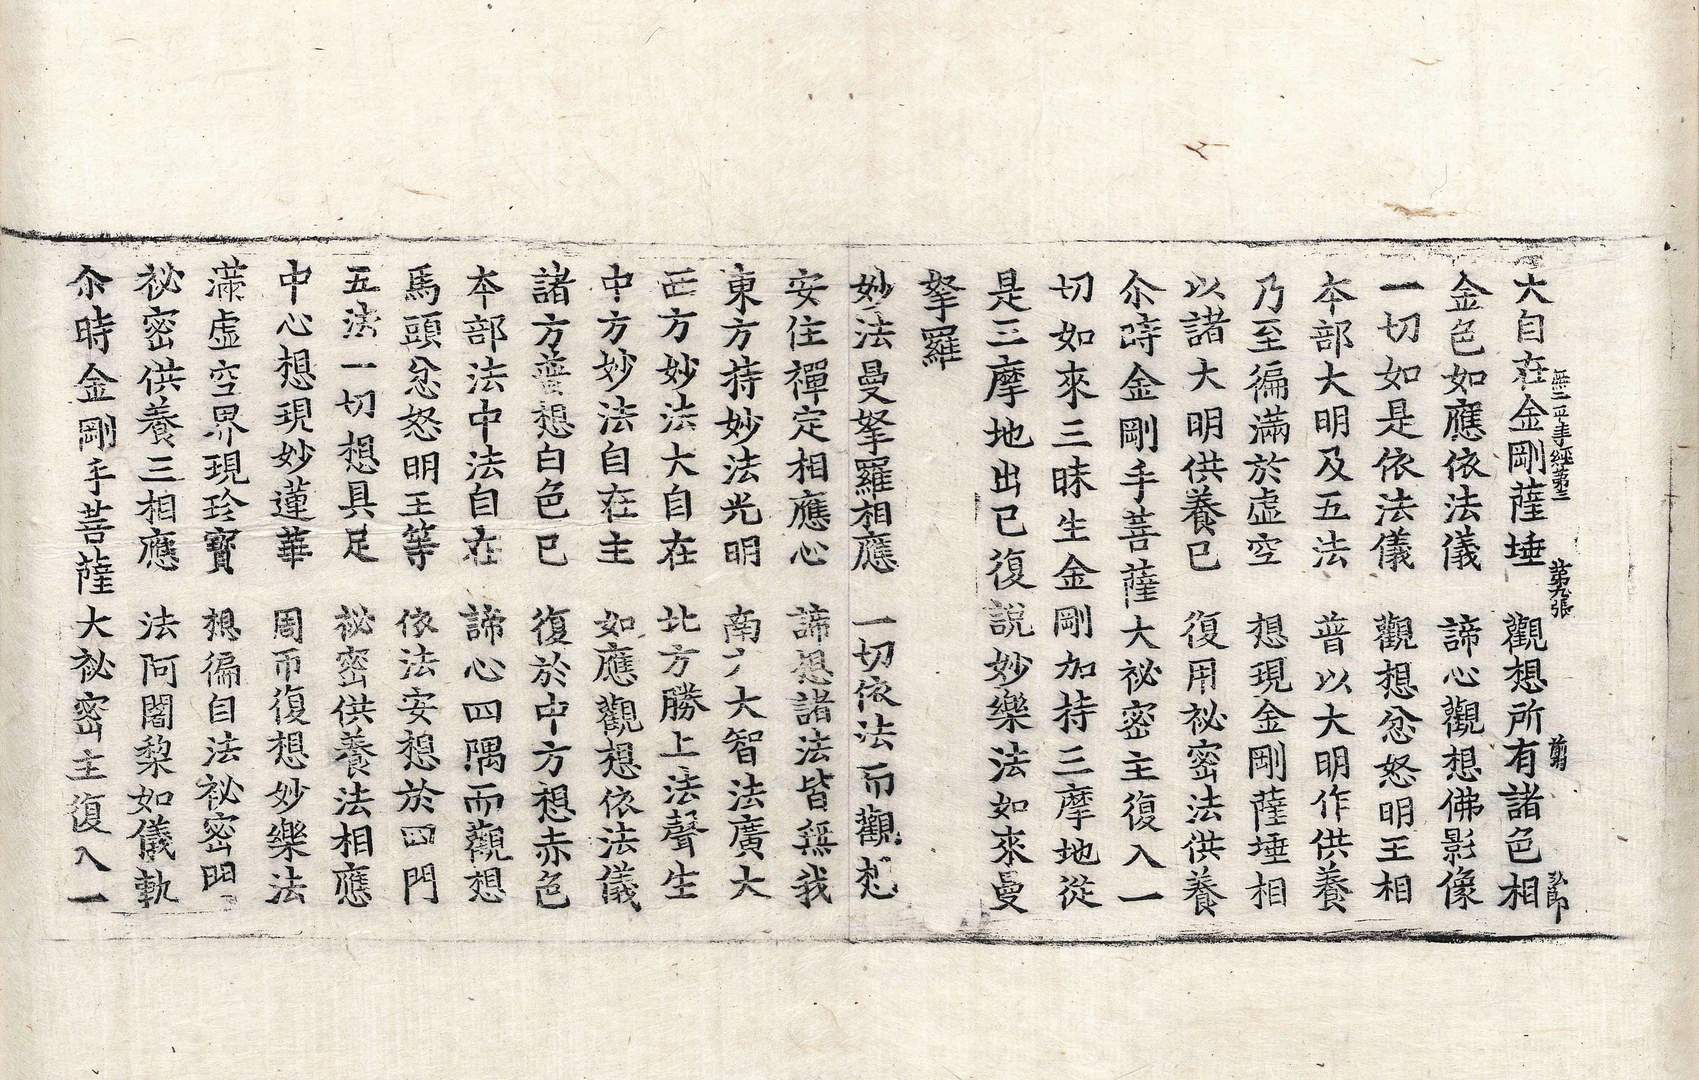 大自在金剛薩埵　觀想所有諸色相
無二平等經第三　第九張　翦　弘郎
金色如應依法儀　諦心觀想佛影像
一切如是依法儀　觀想忿怒明王相
本部大明及五法　普以大明作供養
乃至徧滿於虛空　想現金剛薩埵相
以諸大明供養已　復用祕密法供養
尒時金剛手菩薩大祕密主復入一
切如來三昧生金剛加持三摩地從
是三摩地出已復說妙樂法如來曼
拏羅
妙法曼拏羅相應　一切依法而觀想
安住禪定相應心　諦想諸法皆無我
東方持妙法光明　南方大智法廣大
西方妙法大自在　北方勝上法聲生
中方妙法自在主　如應觀想依法儀
諸方普想白色已　復於中方想赤色
本部法中法自在　諦心四隅而觀想
馬頭忿怒明王等　依法安想於四門
五法一切想具足　祕密供養法相應
中心想現妙蓮華　周帀復想妙樂法
滿虛空界現珍寶　想徧自法祕密門
祕密供養三相應　法阿闍梨如儀軌
尒時金剛手菩薩大祕密主復入一